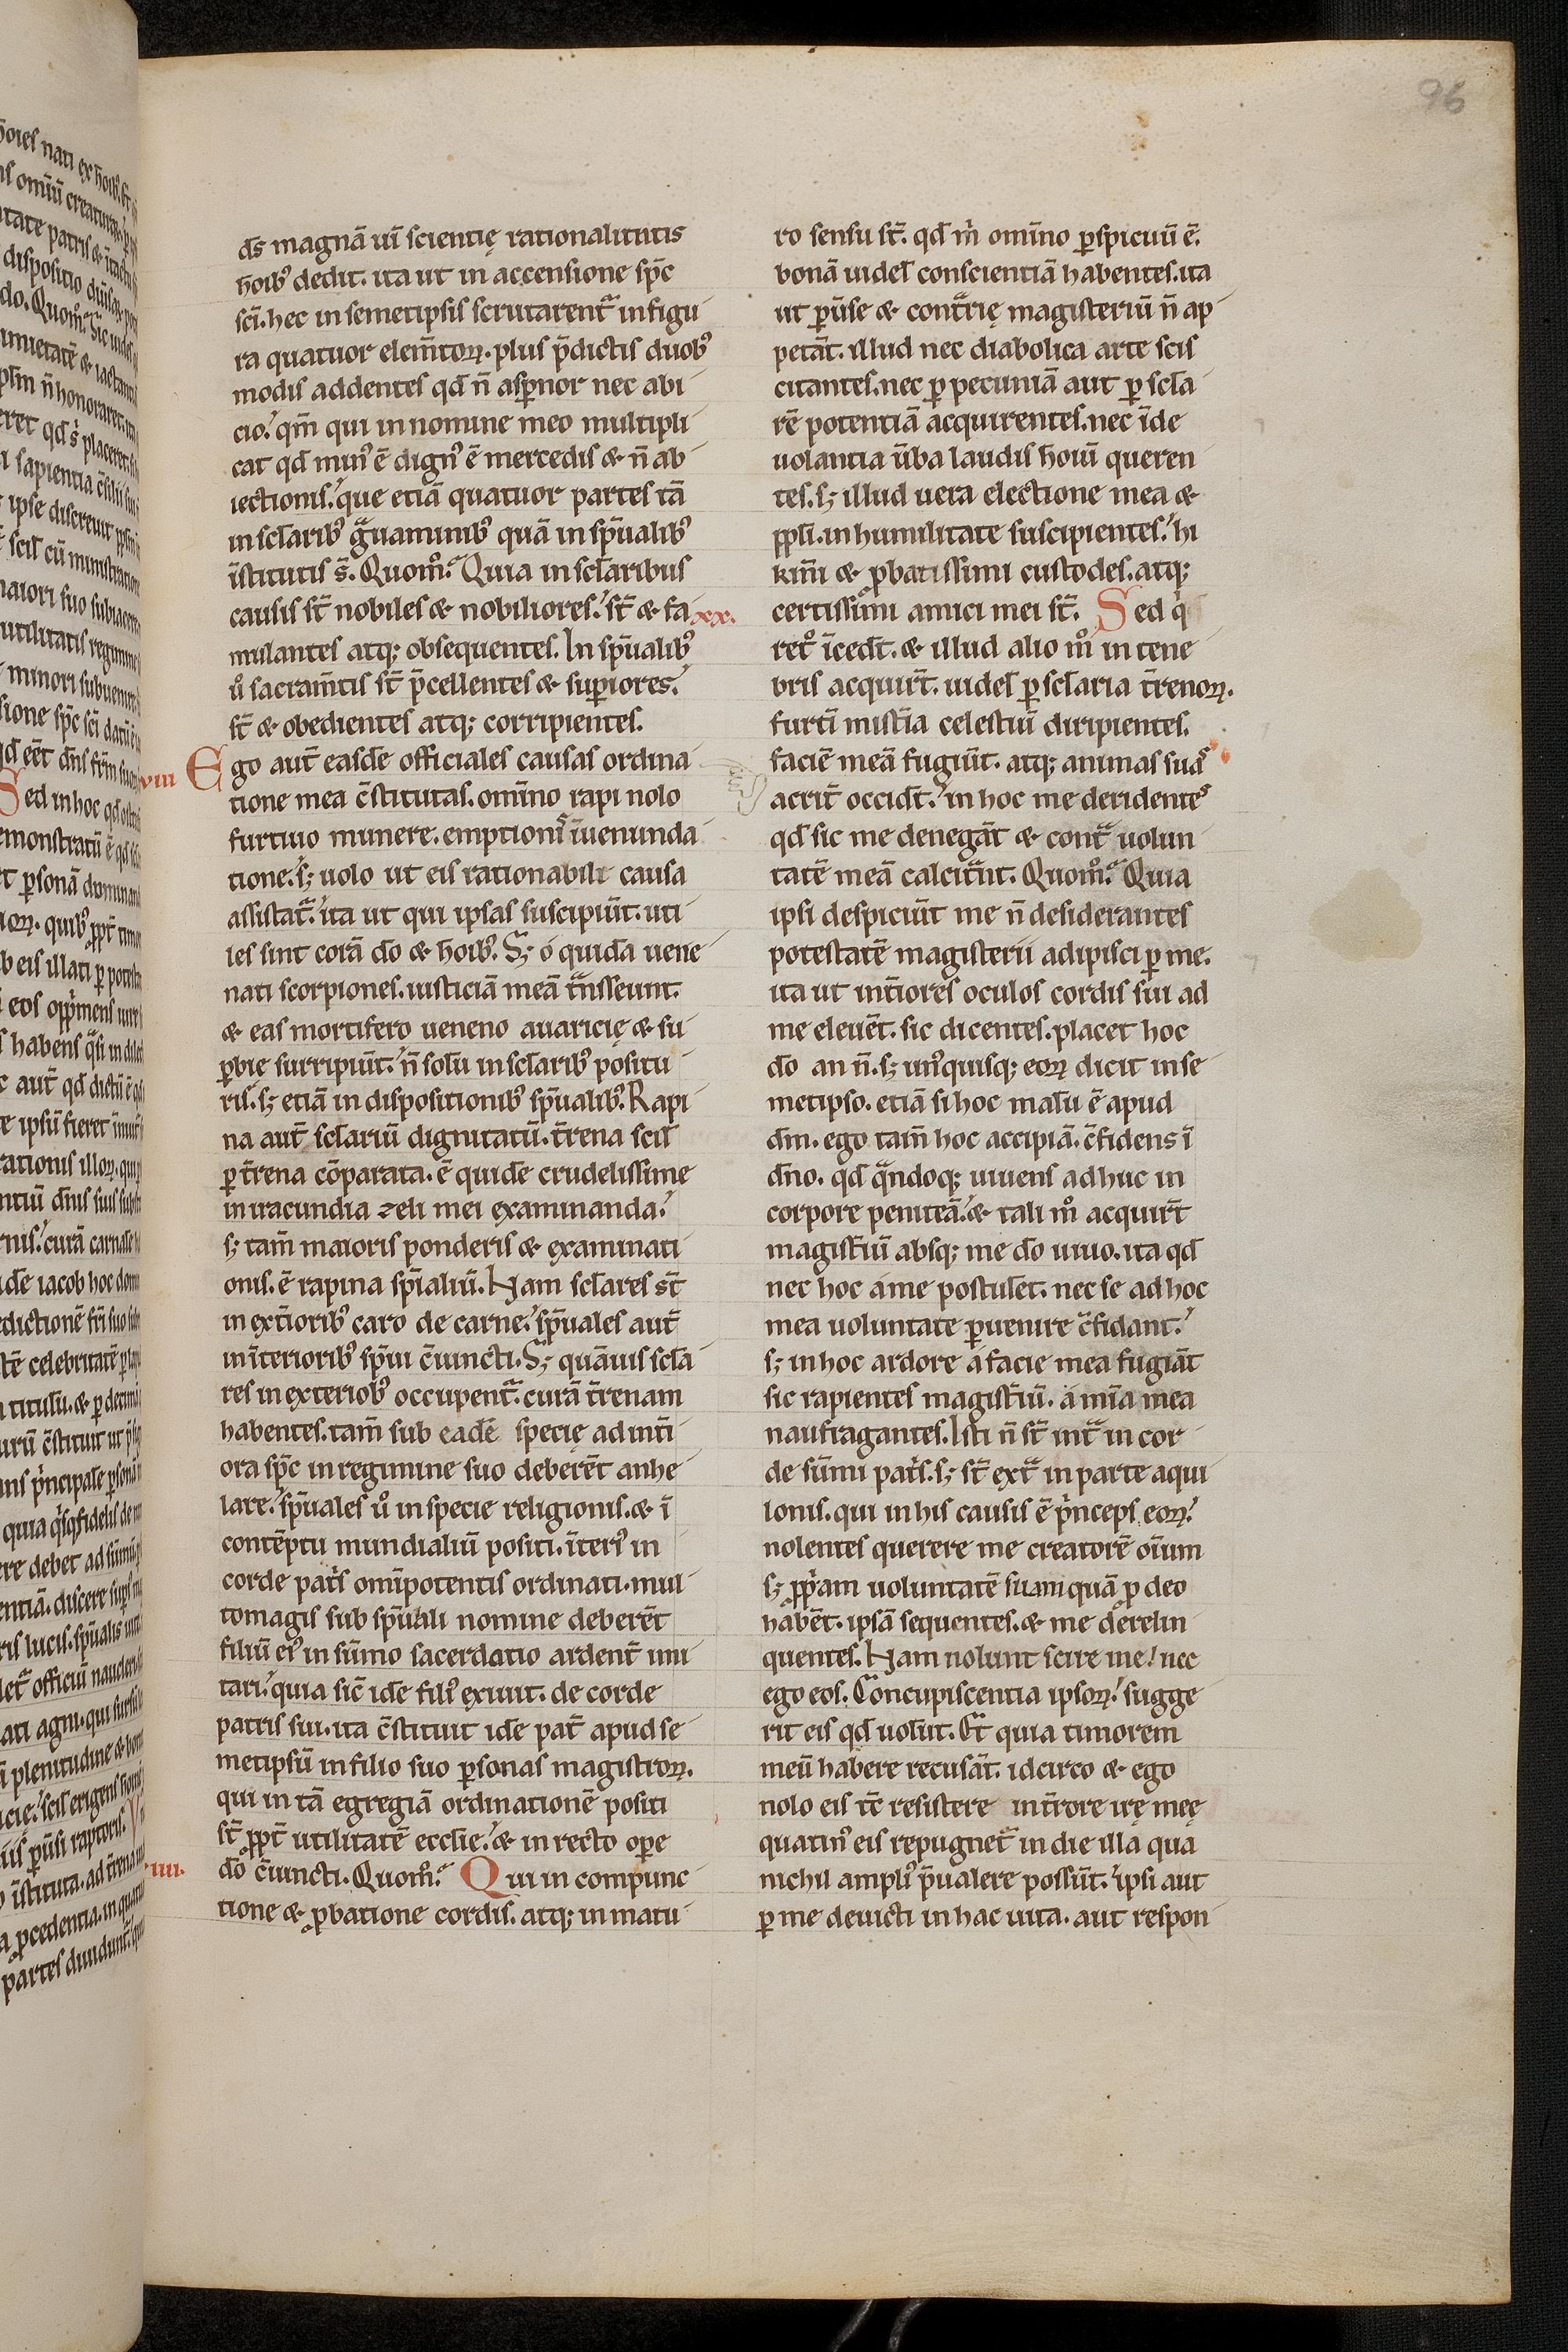 96
ds̄ magnā uī scientię rationalitatis
hōib⁹ dedit. ita ut in accensione sp̄c
sc̄i. hec in semetipsis scrutarent᷑ in figu
ra quatuor elem̄toꝝ. plus p̄dictis duob⁹
modis addentes qd̄ n̄ asꝑnor nec abi
cio. qm̄ qui in nomine meo multipli
cat qd̄ mun⁹ ē dign⁹ ē mercedis & n̄ ab
iectionis. que etiā quatuor partes tā
in sc̄larib⁹ gͣuaminib⁹ quā in sp̄ualib⁹
īstitutis s̄. Quom̊. Quia in sc̄laribus
causis st̄ nobiles & nobiliores. st̄ & fa
xx.
mulantes atq; obsequentes. In sp̄ualib⁹
ů sacram̄tis st̄ p̄cellentes & suꝑiores.
st̄ & obedientes atq; corripientes.
viii Ego aut̄ easdē officiales causas ordina
tione mea c̄stitutas. omīno rapi nolo
furtiuo munere. emptionis ī uenunda
tione. s; uolo ut eis rationabili causa
assistat᷑. ita ut qui ipsas suscipiūt. uti
les sint corā do & hoīb⁹. S; ó quidā uene
nati scorpiones. iusticiā meā tͣnsseunt.
& eas mortifero ueneno auaricię & su
ꝑbię surripiūt. n̄ solū in sc̄larib⁹ positu
ris. s; etiā in dispositionib⁹ sp̄ualib⁹. Rapi
na aut̄ sc̄lariū dignitatū. t̄rena scil̄
ꝑ t̄rena cōparata. ē quidē crudelissime
in iracundia zeli mei examinanda.
s; tam̄ maioris ponderis & examinati
onis. ē rapina sp̄ialiū. Nam sc̄lares st̄
in ext̄iorib⁹ caro de carne. sp̄uales aut̄
in īteriorib⁹ sp̄ui c̄iuncti. S; quāuis sc̄la
res in exteriob⁹ occupent᷑. curā t̄renam
habentes. tam̄ sub eadē specię ad int̄i
ora sp̄c in regimine suo deberēt anhe
lare. sp̄uales ů in specie religionis. & ī
contēptu mundialiū positi. īteri⁹ in
corde pat̄s omīpotentis ordinati. mul
tomagis sub sp̄uali nomine deberēt
filiū ei⁹ in sūmo sacerdotio ardent̄ imi
tari. quia sic̄ idē fili⁹ exiuit. de corde
patris sui. ita c̄stituit idē pat̄ apud se
metipsū in filio suo ꝑsonas magistroꝝ.
qui in tā egregiā ordinationē positi
st̄ ꝓpt̄ utilitatē eccl̄ie. & in recto oꝑe
do c̄iuncti. Quom̊. iiii. Qui in compunc
tione & ꝓbatione cordis. atq; in matu
ro sensu st̄. qd̄ m̄ omīno ꝑspicuū ē.
bonā uidel̄ conscientiā habentes. ita
ut ꝑūse & cont̄rię magisteriū n̄ ap
petāt. illud nec diabolica arte scis
citantes. nec ꝑ pecuniā aut ꝑ sc̄la
rē potentiā acquirentes. nec īde
uolantia ūba laudis hoīu queren
tes. s; illud uera electione mea &
ppl̄i. in humilitate suscipientes. hi
kmī & ꝓbatissimi custodes. atq;
certissimi amici mei st̄. Sed q̄
ret̊ īcedt̄. & illud alio m̊ in tene
bris acquirt̄. uidel̄ ꝑ sc̄laria t̄renoꝝ.
furtī mist̄ia celestiū diripientes.
faciē meā fugiūt. atq; animas suas
acrit̄ occidt̄. in hoc me deridentes
qd̄ sic me denegāt & contͣ uolun
tatē meā calcitͣnt. Quom̊. Quia
ipsi despiciūt me n̄ desiderantes
potestatē magisterii adipisci ꝑ me.
ita ut int̄iores oculos cordis sui ad
me eleuēt. sic dicentes. placet hoc
do an n̄. s; un⁹quisq; eoꝝ dicit in se
metipso. etiā si hoc malū ē apud
dm̄. ego tam̄ hoc accipiā. c̄fidens ī
dn̄o. qd̄ qͣndoq; uiuens adhuc in
corpore peniteā. & tali m̊ acquirt̄
magist̄iū absq; me do uiuo. ita qd̄
nec hoc a me postulet. nec se ad hoc
mea uoluntate ꝑuenire c̄fidant.
s; in hoc ardore á facie mea fugiāt
sic rapientes magist̄iū. á mīa mea
naufragantes. Isti n̄ st̄ intͣ in cor
de sūmi pat̄s. s; st̄ extͣ in parte aqui
lonis. qui in his causis ē p̄nceps eoꝝ.
nolentes querere me creatorē oīum
s; ꝓp̄am uoluntatē suam quā ꝓ deo
habēt. ipsā sequentes. & me derelin
quentes. Nam nolunt scire me. nec
ego eos. Concupiscentia ipsoꝝ. sugge
rit eis qd̄ uolūt. Et quia timorem
meū habere recusāt. idcirco & ego
nolo eis tē resistere in t̄rore irę meę
quatin⁹ eis repugnet᷑ in die illa qua
nichil ampli⁹ p̄ualere possūt. ipsi aut
ꝑ me deuicti in hac uita. aut respon